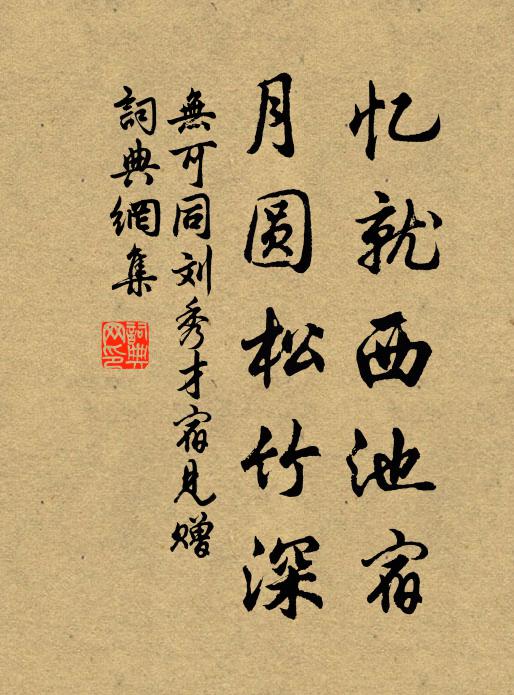 忆就西池宿
月圆松竹深
無可同刘秀才宿见赠
詞典網集
詞典网印